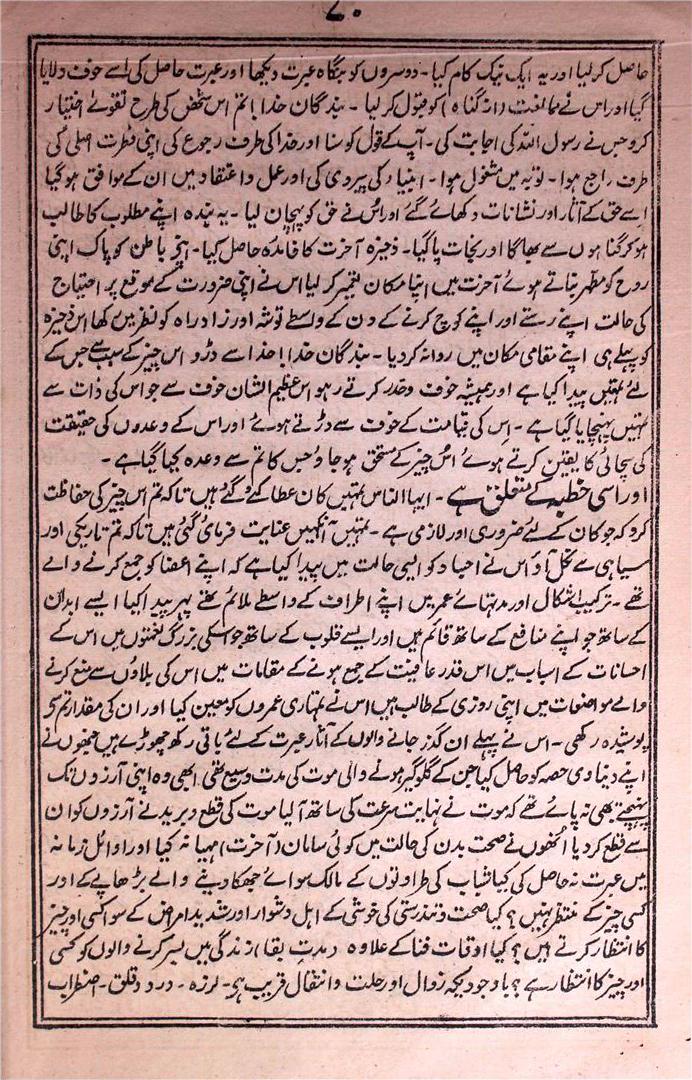 ۷۰
حاصل کرلیا اور یہ ایک نیک کام کیا۔ دوسروں کو بنگاہ عبرت دیکھا اور عبرت حاصل کی اُسے خوف دلایا
گیا اور اس نے ممانعت (از گناہ) کو قبول کرلیا۔ بندگان خدا باتم اس شخص کی طرح تقوےٰ اختیار
کرو جس نے رسول اللہ کی اجابت کی۔ آپ کے قول کو سنا اور خدا کی طرف رجوع کی اپنی فطرت اصلی کی
طرف راجع ہوا۔ توبہ میں مشغول ہوا۔ انبیاء کی پیروی کی اور عمل و اعتقاد میں ان کے موافق ہوگیا
اِسے حق کے آثار اور نشانات دکھائے گئے اور اُس نے حق کو پہچان لیا۔ یہ بندہ اپنے مطلوب کا طالب
ہو کر گناہوں سے بھاگا اور نجات پاگیا۔ ذخیرہ آخرت کا فائدہ حاصل کیا۔ اپنے باطن کو پاک اپنی
روح کو مطہر بناتے ہوئے آخرت میں اپنا مکان تعمیر کر لیا اس نے اپنی ضرورت کے موقع پر احتیاج
کی حالت اپنے رستے اور اپنے کوچ کرنے کے دن کے واسطے توشہ اور زاد راہ کو نظر میں رکھا اس ذخیرہ
کو پہلے ہی اپنے مقامی مکان میں روانہ کردیا۔ بندگان خدا باخدا سے ڈرو اس چیز کے سبب سے جس کے
لئے تمہیں پیدا کیا ہے اور ہمیشہ خوف و حذر کرتے رہو اس عظیم الشان خوف سے جو اس کی ذات سے
تمہیں پہنچایا گیا ہے۔ اِس کی قیامت کے خوف سے ڈرتے ہوئے اور اس کے وعدوں کی حقیقت
کی سچائی کا یقین کرتے ہوئے اُس چیز کے مستحق ہوجاؤ جس کا تم سے وعدہ کیا گیا ہے۔
اور اسی خطبہ کے متعلق ہے۔ ایہا الناس تمہیں کان عطا کئے گئے ہیں تاکہ تم اس چیز کی حفاظت
کرو کہ جو کان کے لئے ضروری اور لازمی ہے۔ تمہیں آنکھیں عنایت فرمائی گئی ہیں تاکہ تم تاریکی اور
سیاہی سے نکل آؤ اس نے اجساد کو ایسی حالت میں پیدا کیا ہے کہ اپنے اعضا کو جمع کرنے والے
تھے۔ ترکیب اشکال اور مدتہائے عمر میں اپنے اطراف کے واسطے ملائم تھے پھر پیدا کیا ایسے ابدان
کے ساتھ جو اپنے منافع کے ساتھ قائم ہیں اور ایسے قلوب کے ساتھ جو اسکی بزرگ نعمتوں میں اس کے
احسانات کے اسباب میں اس قدر عافیت کے جمع ہونے کے مقامات میں اس کی بلاؤں سے منع کرنے
والے مواضعات میں اپنی روزی کے طالب ہیں اس نے تمہاری عمروں کو معین کیا اور ان کی مقدار تم سے
پوشیدہ رکھی۔ اس نے پہلے ان گذر جانے والوں کے آثار عبرت کے لئے باقی رکھ چھوڑے ہیں جنھوں نے
اپنے دنیاوی حصہ کو حاصل کیا جن کے گلوگیر ہونے والی موت کی مدت وسیع تھی ابھی وہ اپنی آرزوں تک
پہنچنے بھی نہ پائے تھے کہ موت نے نہایت سرعت کی ساتھ آلیا موت کی قطع و برید نے آرزوں کو ان
سے قطع کردیا انھوں نے صحت بدن کی حالت میں کوئی سامان (آخرت) مہیا نہ کیا اور اوائل زمانہ
میں عبرت نہ حاصل کی کیا شباب کی طراوتوں کے مالک سوائے جھکا دینے والے بڑھاپے کے اور
کسی چیز کے منتظر نہیں؟ کیا صحت و تندرستی کی خوشی کے اہل دشوار اور شدید امراض کے سوا کسی اور چیز
کا انتظار کرتے ہیں؟ کیا اوقات فنا کے علاوہ (مدت بقا) زندگی میں بسر کرنے والوں کو کسی
اور چیز کا انتظار ہے؟ باوجودیکہ زوال اور رحلت و انتقال قریب ہے۔ لرزہ۔ درد و قلق۔ اضطراب